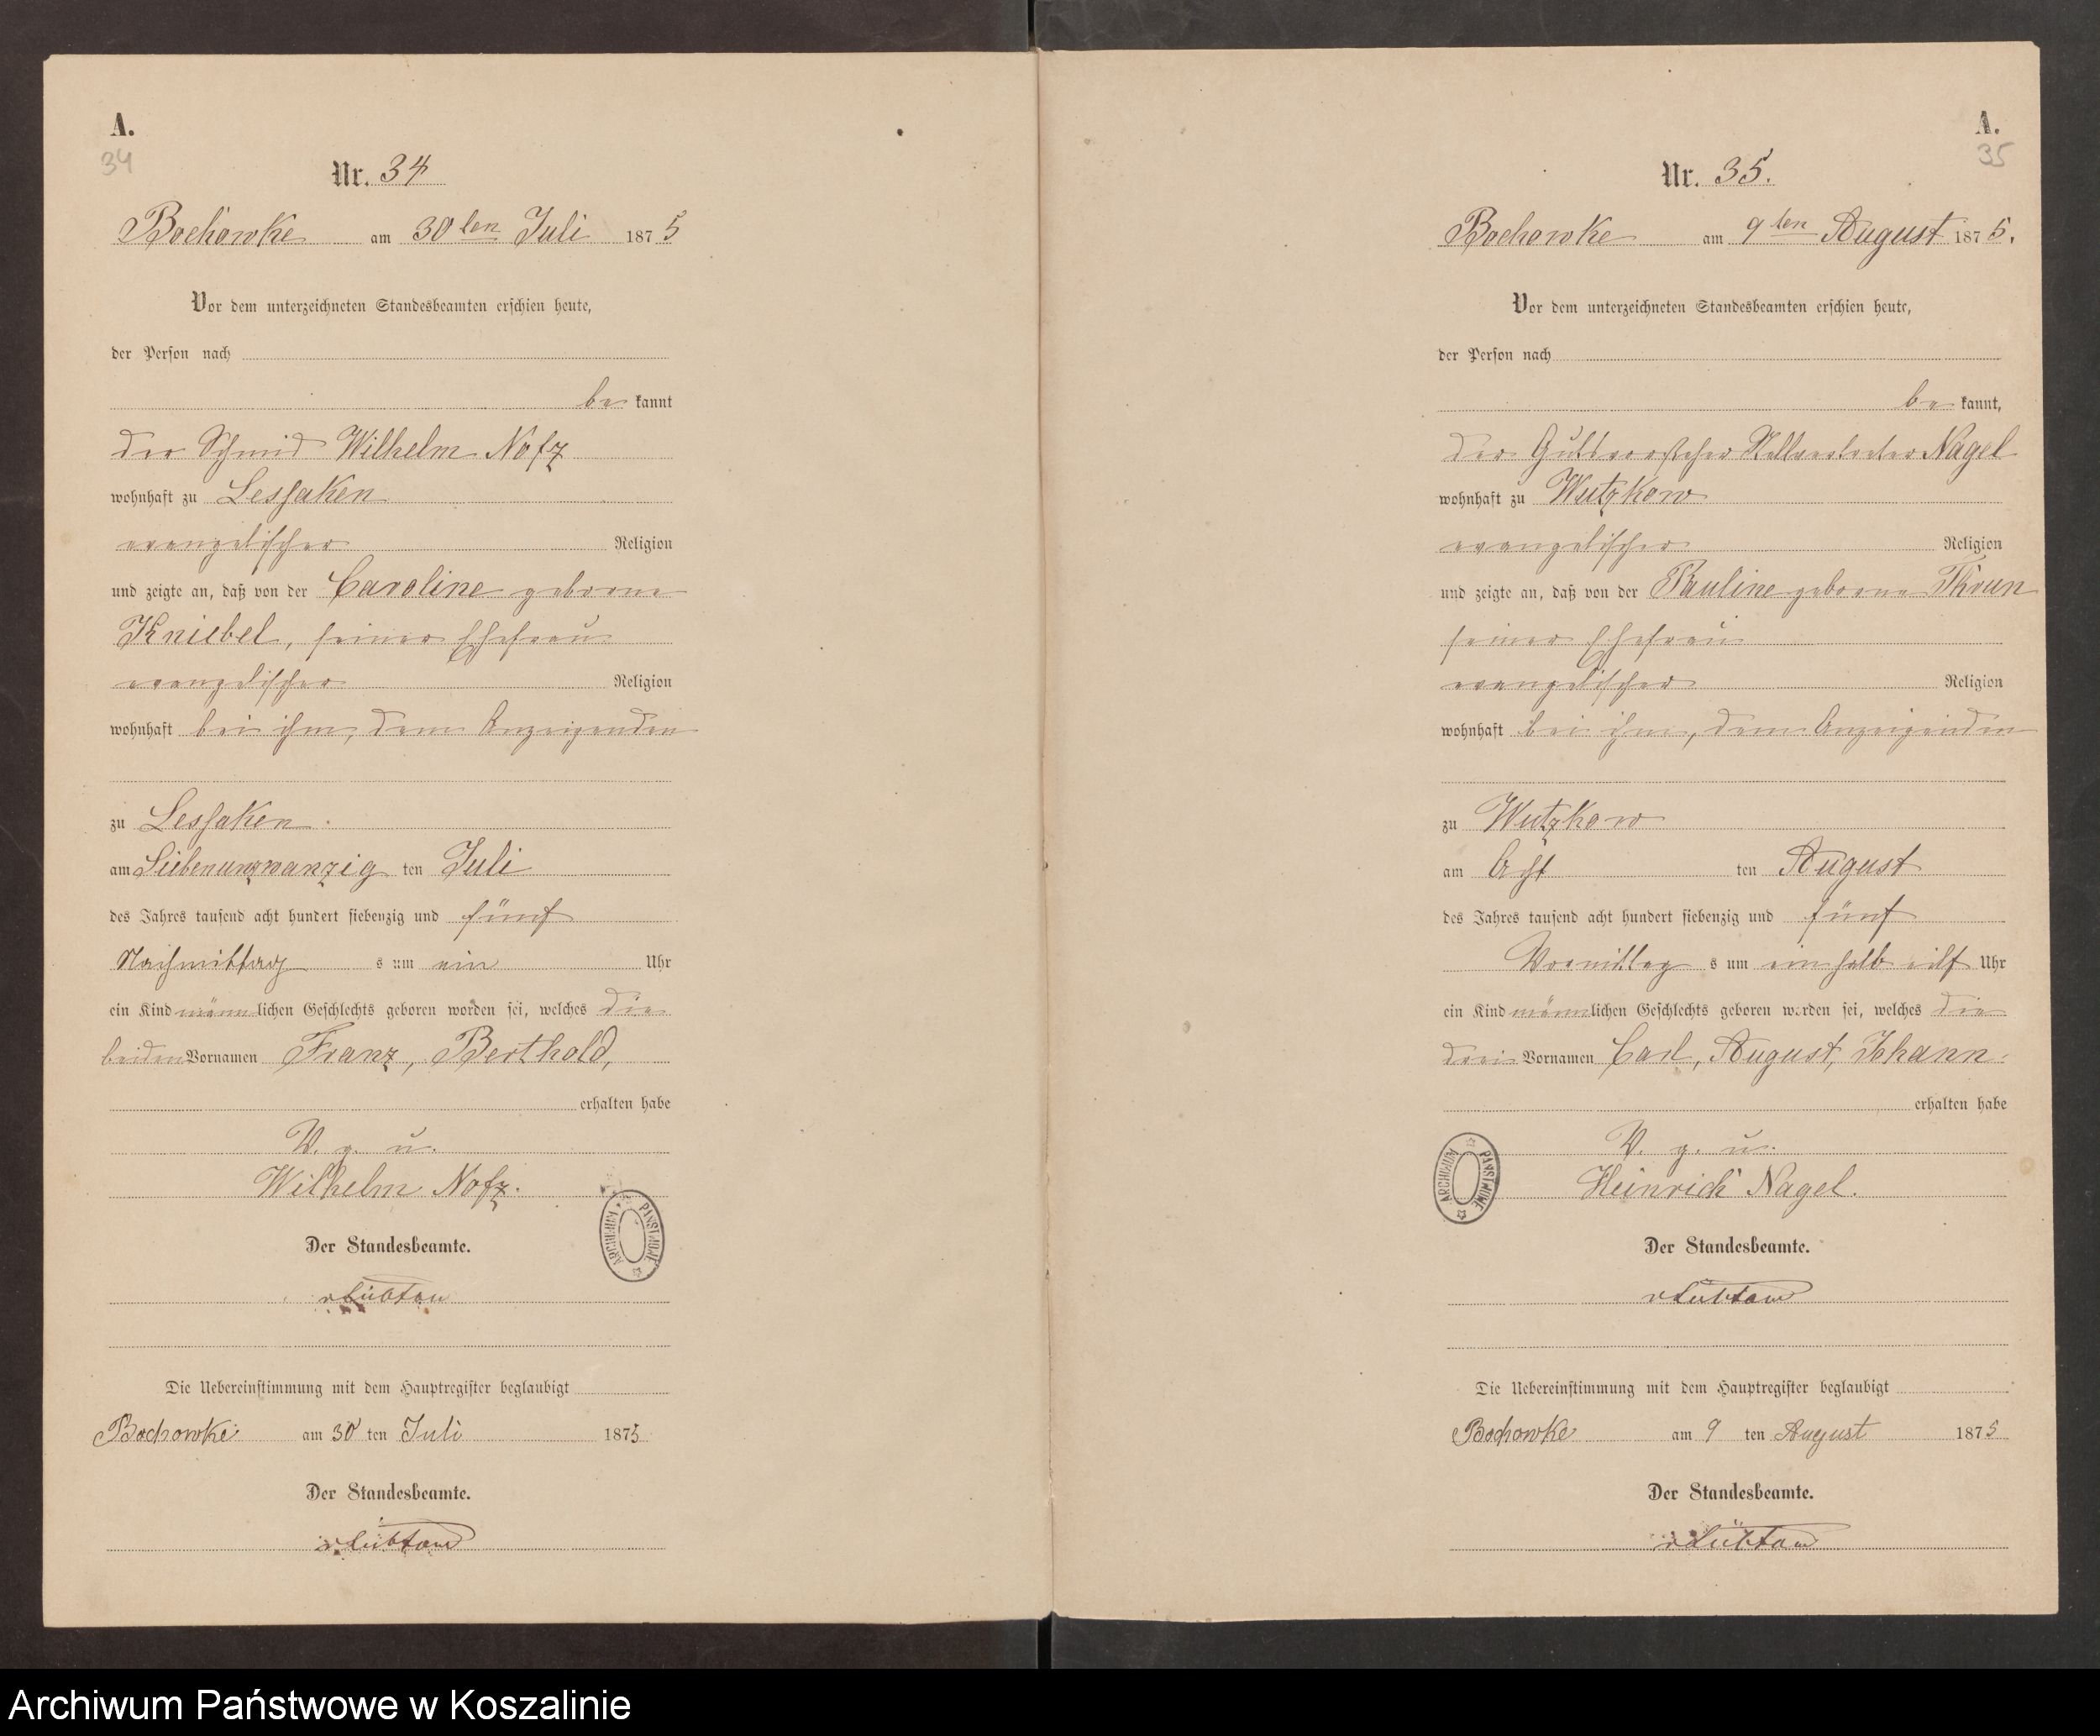 A.
34
Nr. 34
Bochowke am 30ten Juli 1875
Vor dem unterzeichneten Standesbeamten erschien heute,
der Person nach
be kannt
der Schmid Wilhelm Nofz
wohnhaft zu Lessaken
evangelischer Religion
und zeigte an, daß von der Caroline geborne
Kniebel, seiner Ehefrau
evangelischer Religion
wohnhaft bei ihm, dem Anzeigenden
zu Lessaken.
am Siebenunzwanzig ten Juli
des Jahres tausend acht hundert siebenzig und fünf
Nachmittag s um ein Uhr
ein Kind männlichen Geschlechts geboren worden sei, welches die
beiden Vornamen Franz, Berthold,
erhalten habe
V. g. u.
Wilhelm Nofz.
ARCHIWUM PAŃSTWOWE
Der Standesbeamte.
vLübtow
Die Uebereinstimmung mit dem Hauptregister beglaubigt
Bochowke am 30 ten Juli 1875
Der Standesbeamte.
vLübtow
A.
35
Nr. 35.
Bochowke am 9ten August 1875.
Vor dem unterzeichneten Standesbeamten erschien heute,
der Person nach
be kannt,
der Gutsvorsteher Stellvertreter Nagel
wohnhaft zu Wutzkow
evangelischer Religion
und zeigte an, daß von der Pauline geborne Thrun
seiner Ehefrau
evangelischer Religion
wohnhaft bei ihm, dem Anzeigenden
zu Wutzkow
am Acht ten August
des Jahres tausend acht hundert siebenzig und fünf
Vormittag s um ein halb eilf Uhr
ein Kind männlichen Geschlechts geboren worden sei, welches die
drei Vornamen Carl, August, Johann.
erhalten habe
V. g. u.
Heinrich Nagel.
ARCHIWUM PAŃSTWOWE
Der Standesbeamte.
vLübtow
Die Uebereinstimmung mit dem Hauptregister beglaubigt
Bochowke am 9 ten August 1875
Der Standesbeamte.
vLübtow
Archiwum Państwowe w Koszalinie